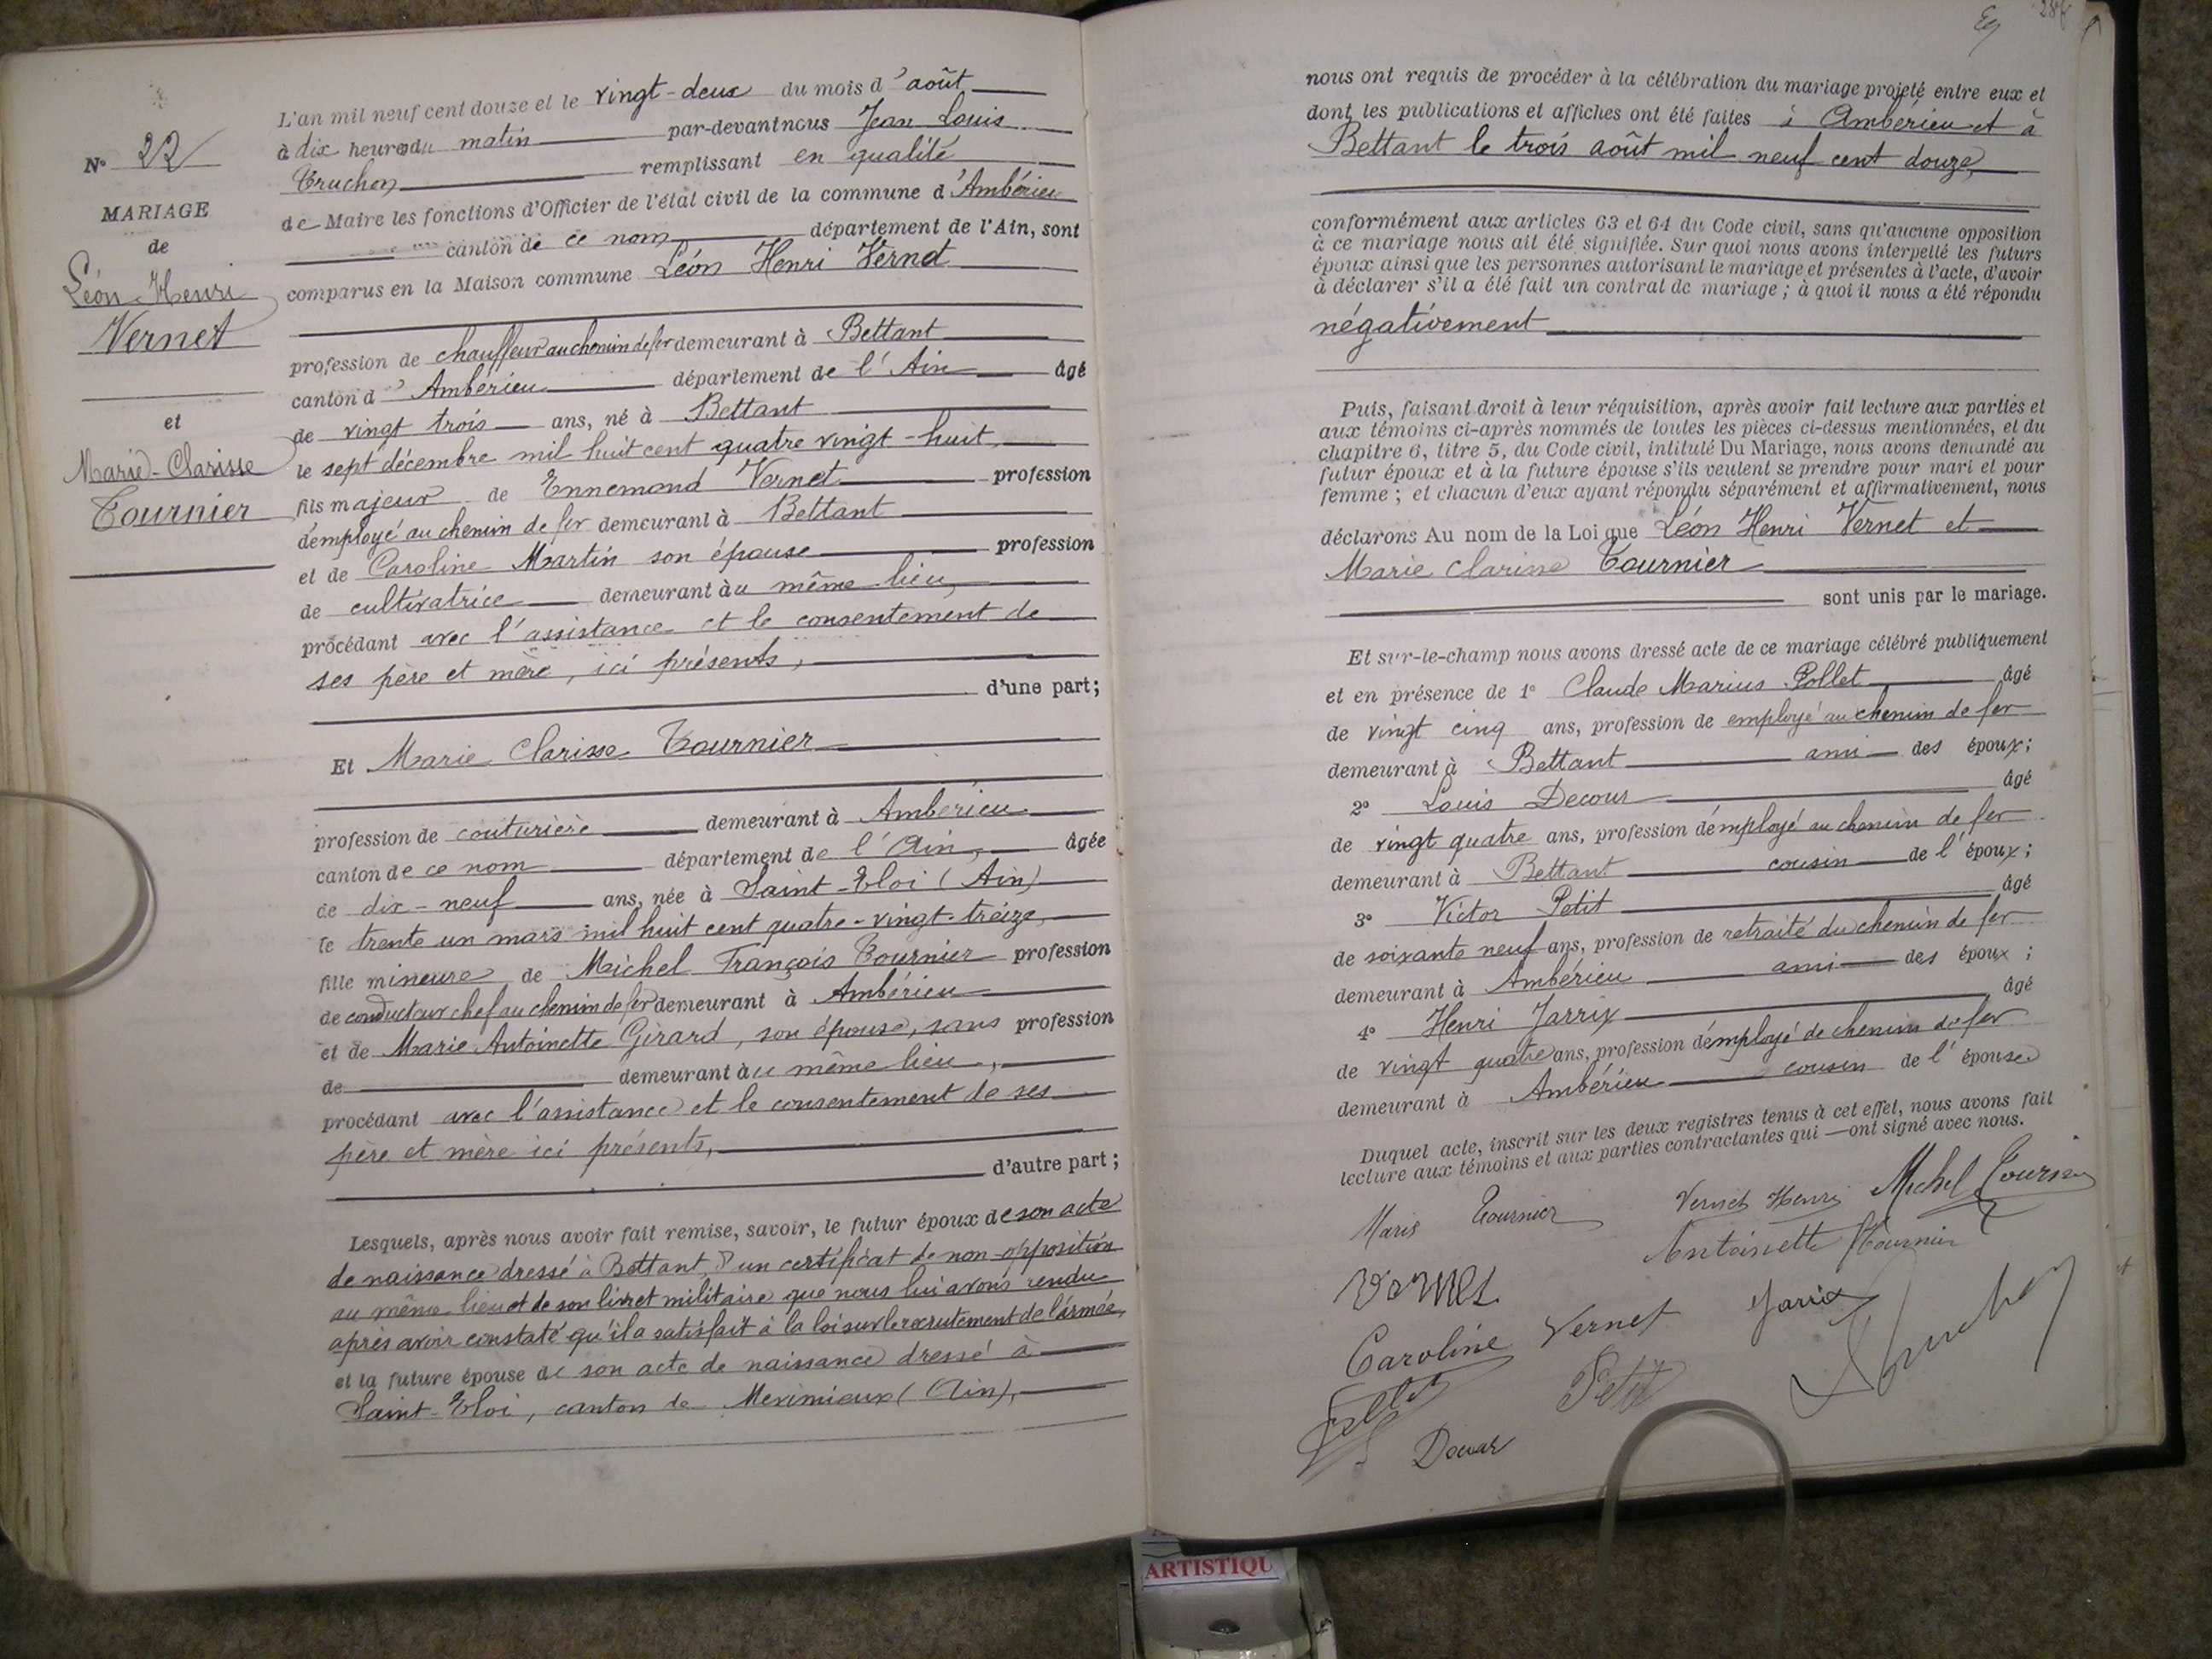 N° 22
MARIAGE
de
Léon Henri
Vernet
et
Marie-Clarisse
Tournier
L'an mil neuf cent douze et le vingt-deux du mois d'août
à dix heures du matin par-devant nous Jean Louis
Truchon remplissant en qualité
de Maire les fonctions d'Officier de l'état civil de la commune d'Ambérieu
canton de ce nom département de l'Ain, sont
comparus en la Maison commune Léon Henri Vernet
profession de chauffeur au chemin de fer demeurant à Bettant
canton d'Ambérieu département de l'Ain âgé
de vingt trois ans, né à Bettant
le sept décembre mil huit cent quatre vingt-huit,
fils majeur de Ennemond Vernet profession
d'employé au chemin de fer demeurant à Bettant
et de Caroline Martin son épouse profession
de cultivatrice demeurant au même lieu,
procédant avec l'assistance et le consentement de
ses père et mère, ici présents,
d'une part;
Et Marie Clarisse Tournier
profession de couturière demeurant à Ambérieu
canton de ce nom département de l'Ain, âgée
de dix-neuf ans, née à Saint-Eloi (Ain)
le trente un mars mil huit cent quatre-vingt-treize,
fille mineure de Michel François Tournier profession
de conducteur chef au chemin de fer demeurant à Ambérieu
et de Marie Antoinette Girard, son épouse, sans profession
de demeurant au même lieu,
procédant avec l'assistance et le consentement de ses
père et mère ici présents,
d'autre part;
Lesquels, après nous avoir fait remise, savoir, le futur époux de son acte
de naissance dressé à Bettant, d'un certificat de non-opposition
au même lieu et de son livret militaire que nous lui avons rendu
après avoir constaté qu'il a satisfait à la loi sur le recrutement de l'armée,
et la future épouse de son acte de naissance dressé à
Saint-Eloi, canton de Meximieux (Ain),
nous ont requis de procéder à la célébration du mariage projeté entre eux et
dont les publications et affiches ont été faites à Ambérieu et à
Bettant le trois août mil neuf cent douze,
conformément aux articles 63 et 64 du Code civil, sans qu'aucune opposition
à ce mariage nous ait été signifiée. Sur quoi nous avons interpellé les futurs
époux ainsi que les personnes autorisant le mariage et présentes à l'acte, d'avoir
à déclarer s'il a été fait un contrat de mariage ; à quoi il nous a été répondu
négativement
Puis, faisant droit à leur réquisition, après avoir fait lecture aux parties et
aux témoins ci-après nommés de toutes les pièces ci-dessus mentionnées, et du
chapitre 6, titre 5, du Code civil, intitulé Du Mariage, nous avons demandé au
futur époux et à la future épouse s'ils veulent se prendre pour mari et pour
femme ; et chacun d'eux ayant répondu séparément et affirmativement, nous
déclarons Au nom de la Loi que Léon Henri Vernet et
Marie Clarisse Tournier
sont unis par le mariage.
Et sur-le-champ nous avons dressé acte de ce mariage célébré publiquement
et en présence de 1° Claude Marius Pollet âgé
de vingt cinq ans, profession de employé au chemin de fer
demeurant à Bettant ami des époux;
2° Louis Decour âgé
de vingt quatre ans, profession d'employé au chemin de fer
demeurant à Bettant cousin de l'époux;
3° Victor Petit âgé
de soixante neuf ans, profession de retraité du chemin de fer
demeurant à Ambérieu ami des époux ;
4° Henri Jarrix âgé
de vingt quatre ans, profession d'employé de chemin de fer
demeurant à Ambérieu cousin de l'épouse
Duquel acte, inscrit sur les deux registres tenus à cet effet, nous avons fait
lecture aux témoins et aux parties contractantes qui —ont signé avec nous.
Marie Tournier Vernet Henri Michel Tournier
Antoinette Tournier
Vernet
Caroline Vernet Jarrix
Petit
Decour
ARTISTIQU